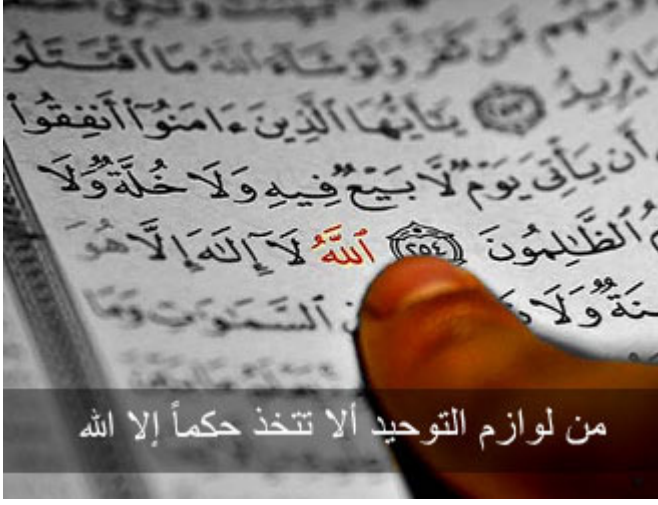 مِّن كَفَرَ وَلَوْ شَآءَ ٱللَّهُ مَا ٱقْتَتَلُوا۟
مَا يُرِيدُ ٢٥٣ يَـٰٓأَيُّهَا ٱلَّذِينَ ءَامَنُوٓا۟ أَنفِقُوا۟
أَن يَأْتِىَ يَوْمٌ لَّا بَيْعٌ فِيهِ وَلَا خُلَّةٌ وَلَا
ٱلظَّـٰلِمُونَ ٢٥٤ ٱللَّهُ لَآ إِلَـٰهَ إِلَّا هُوَ
سِنَةٌ وَلَا ٱلسَّمَـٰوَٰتِ وَمَا
من لوازم التوحيد ألا تتخذ حكماً إلا الله